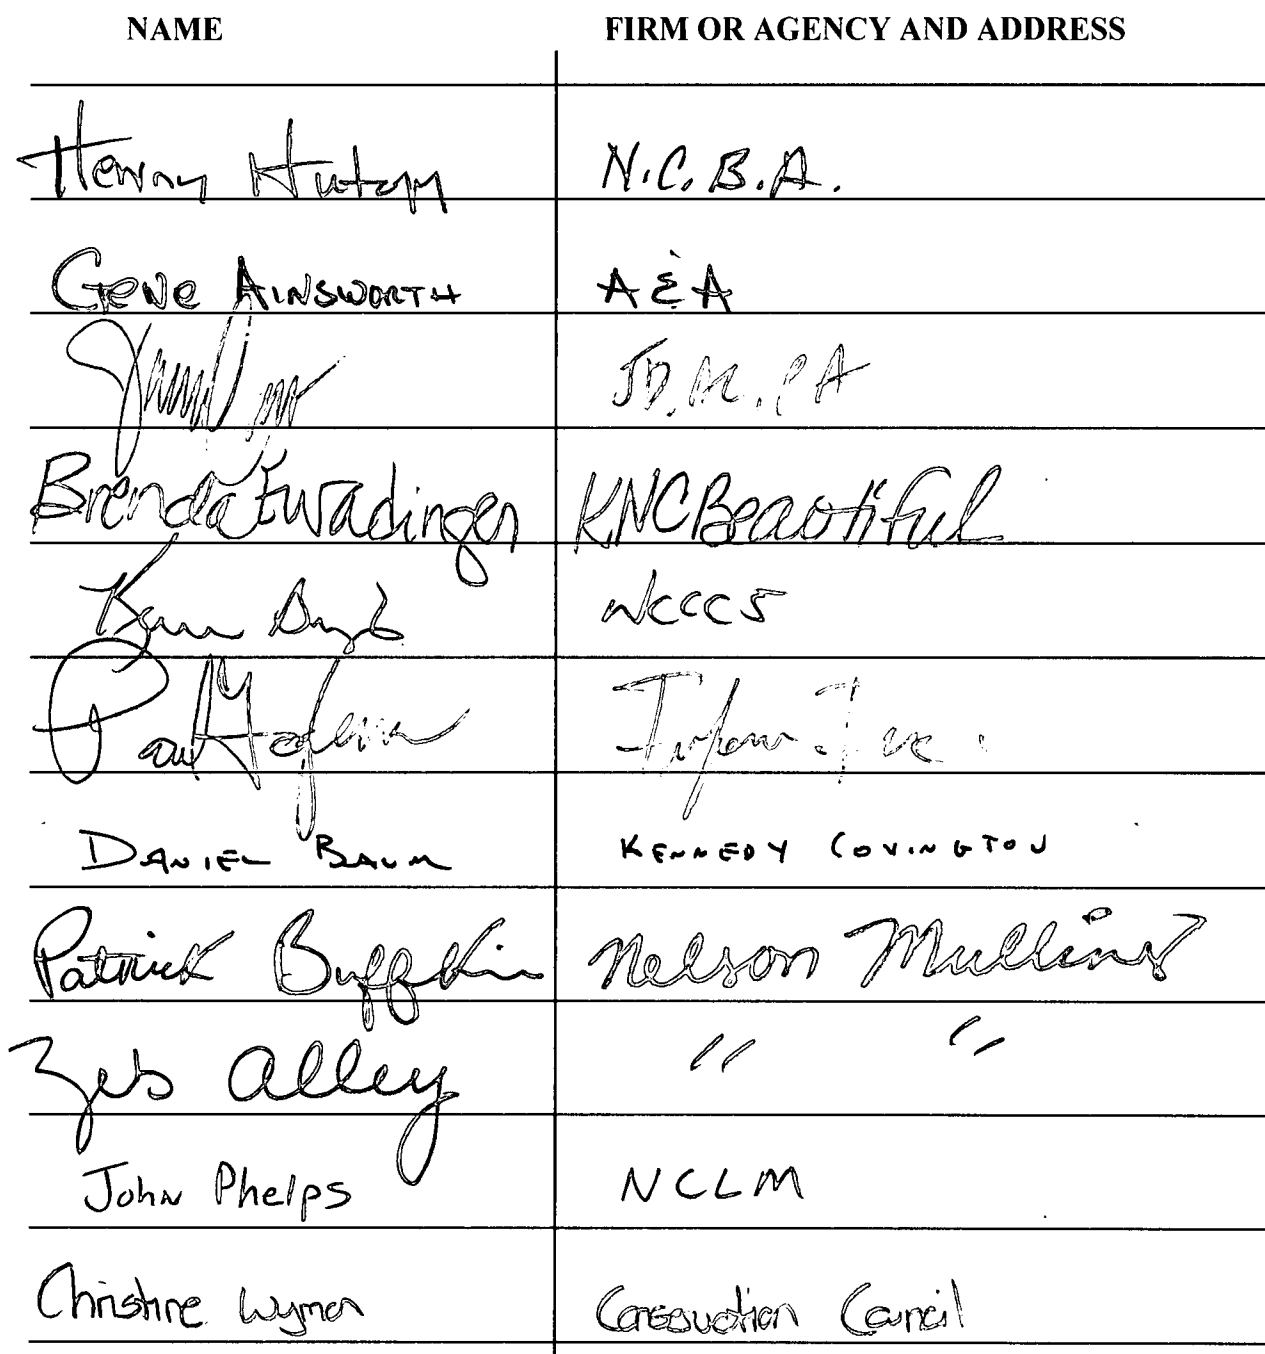 NAME FIRM OR AGENCY AND ADDRESS
Henry N.C.B.A.
Gene Ainsworth A & A
Brenda Ewadinger KNCBeautiful
NCCCS
Paul
DANIEL BAUM KENNEDY COVINGTON
Patrick Buffkin Nelson Mullins
Zeb Alley " "
John Phelps NCLM
Christine Wyman Conservation Council